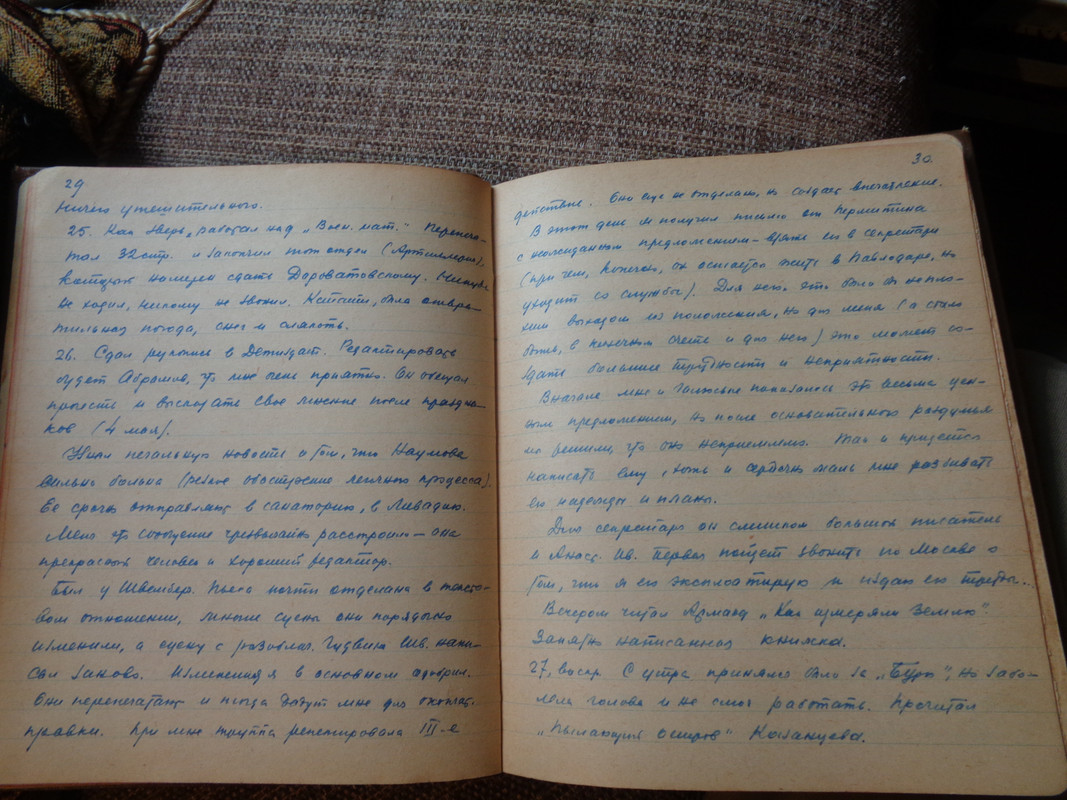 29
Ничего утешительного.
25. Как зверь, работал над „Воен. мат." Перепеча-
тал 32 стр. и закончил тот отдел (Артиллерия),
который намерен сдать Дороватовскому. Никуда
не ходил, никому не звонил. Кстати, была отвра-
тительная погода, снег и слякоть.
26. Сдал рукопись в Детиздат. Редактировать
будет Абрамов, что мне очень приятно. Он обещал
прочесть и высказать свое мнение после праздни-
ков (4 мая).
Узнал печальную новость о том, что Наумова
сильно больна (резкое обострение легочного процесса).
Ее срочно отправляют в санаторию, в Ливадию.
Меня это сообщение чрезвычайно расстроило — она
прекрасный человек и хороший редактор.
Был у Швембер. Пьеса почти отделана в тексто-
вом отношении, многие сцены они порядочно
изменили, а сцену с разоблач. Гудвина Шв. напи-
сал заново. Изменения я в основном одобрил.
Они перепечатают и тогда дадут мне для окончат.
правки. При мне труппа репетировала III-е
30.
действие. Они еще не отделано, но создает впечатление.
В этот день я получил письмо от Пермитина
с неожиданным предложением — взять его в секретари
(при чем, конечно, он остается жить в Павлодаре, но
уходит со службы). Для него это было бы непло-
хим выходом из положения, но для меня (а стало
быть, в конечном счете и для него) это может со-
здать большие трудности и неприятности.
Вначале мне и Галюське показалось это весьма цен-
ным предложением, но после основательного раздумья
мы решили, что оно неприемлемо. Так и придется
написать ему, хоть и сердечно жаль мне разбивать
его надежды и планы.
Для секретаря он слишком большой писатель
и Анаст. Ив. первая пойдет звонить по Москве о
том, что я его эксплоатирую и издаю его труды..
Вечером читал Арманд „Как измеряли Землю".
Занятно написанная книжка.
27, воскр. С утра принялся было за „Бури", но забо-
лела голова и не смог работать. Прочитал
„Пылающий остров" Казанцева.